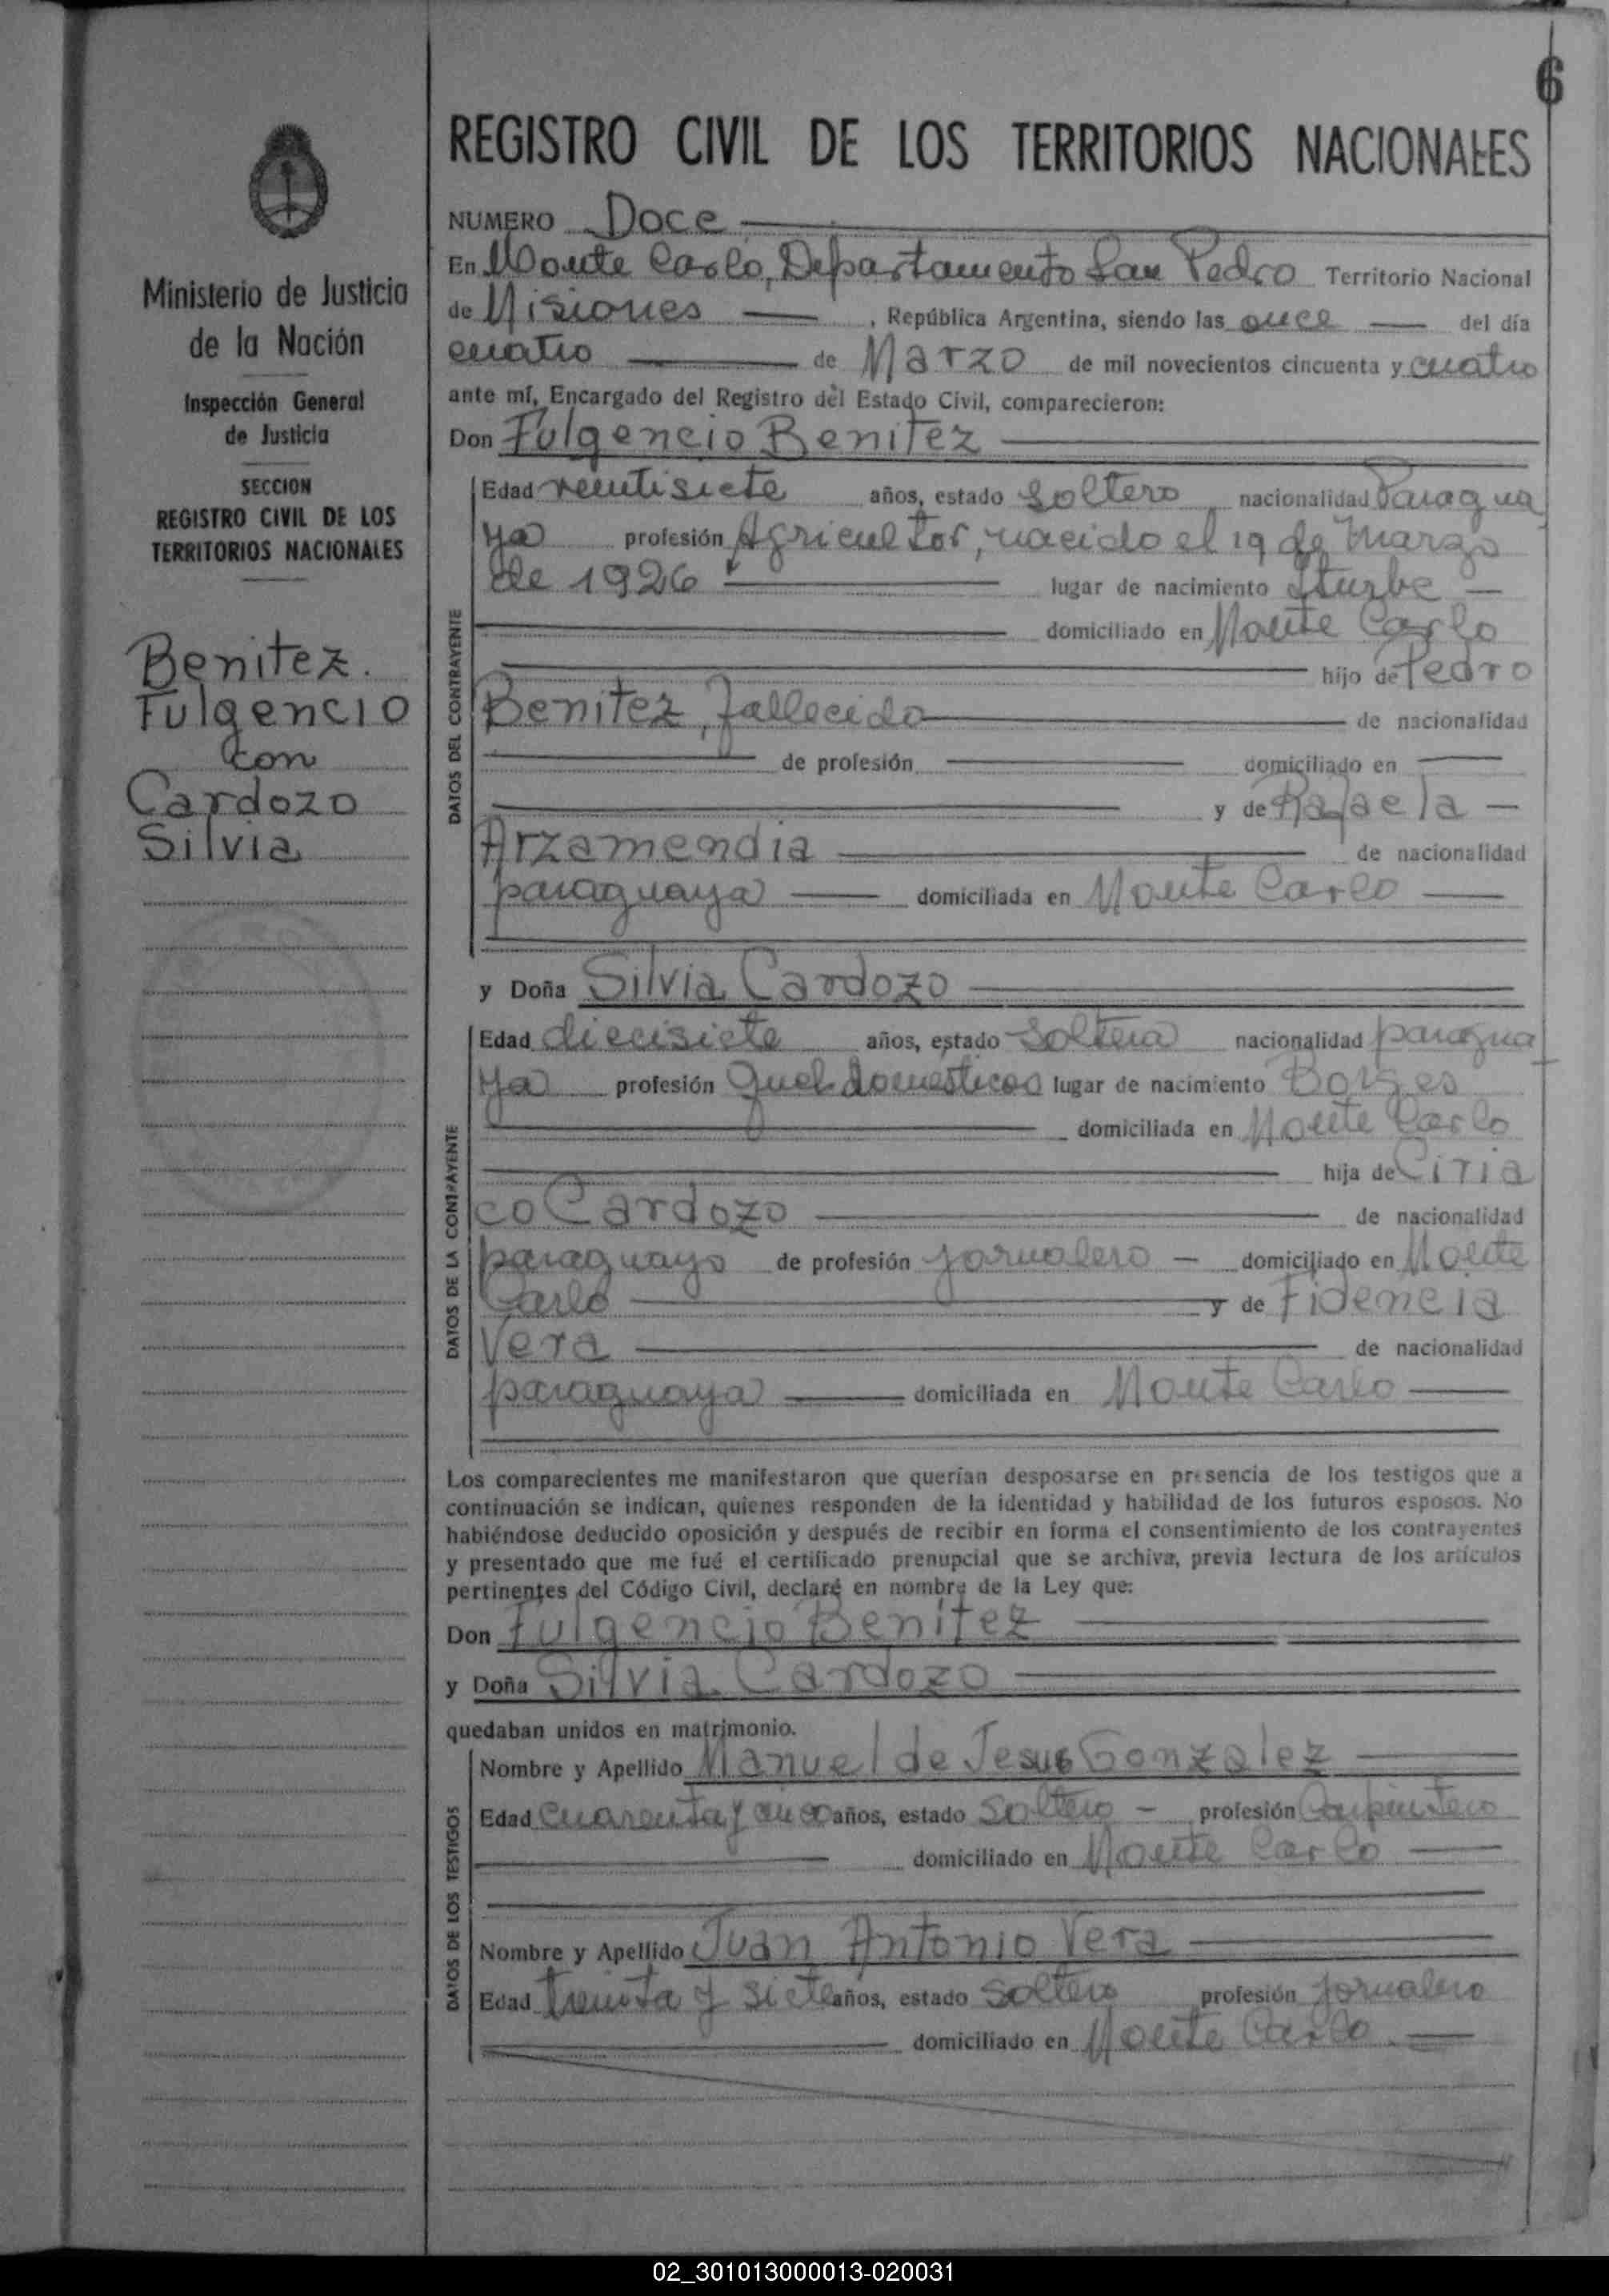 6
REGISTRO CIVIL DE LOS TERRITORIOS NACIONALES
Ministerio de Justicia
de la Nación
Inspección General
de Justicia
SECCION
REGISTRO CIVIL DE LOS
TERRITORIOS NACIONALES
Benitez.
Fulgencio
con
Cardozo
Silvia
NUMERO Doce
En Monte Carlo, Departamento San Pedro Territorio Nacional
de Misiones , República Argentina, siendo las once del día
cuatro de Marzo de mil novecientos cincuenta y cuatro
ante mí, Encargado del Registro del Estado Civil, comparecieron:
Don Fulgencio Benitez
DATOS DEL CONTRAYENTE
Edad veintisiete años, estado soltero nacionalidad Paragua
ya profesión Agricultor, nacido el 19 de Marzo
de 1926 lugar de nacimiento Iturbe
domiciliado en Monte Carlo
hijo de Pedro
Benitez, fallecido de nacionalidad
de profesión domiciliado en
y de Rafaela
Arzamendia de nacionalidad
paraguaya domiciliada en Monte Carlo
y Doña Silvia Cardozo
DATOS DE LA CONTRAYENTE
Edad diecisiete años, estado soltera nacionalidad paragua
ya profesión Queh. domesticos lugar de nacimiento Borges
domiciliada en Monte Carlo
hija de Ciria
co Cardozo de nacionalidad
paraguayo de profesión jornalero domiciliado en Monte
Carlo y de Fidencia
Vera de nacionalidad
paraguaya domiciliada en Monte Carlo
Los comparecientes me manifestaron que querían desposarse en presencia de los testigos que a
continuación se indican, quienes responden de la identidad y habilidad de los futuros esposos. No
habiéndose deducido oposición y después de recibir en forma el consentimiento de los contrayentes
y presentado que me fué el certificado prenupcial que se archiva, previa lectura de los artículos
pertinentes del Código Civil, declaré en nombre de la Ley que:
Don Fulgencio Benitez
y Doña Silvia Cardozo
quedaban unidos en matrimonio.
DATOS DE LOS TESTIGOS
Nombre y Apellido Manuel de Jesus Gonzalez
Edad cuarenta y cinco años, estado soltero profesión Carpintero
domiciliado en Monte Carlo
Nombre y Apellido Juan Antonio Vera
Edad treinta y siete años, estado soltero profesión jornalero
domiciliado en Monte Carlo.
02_301013000013-020031